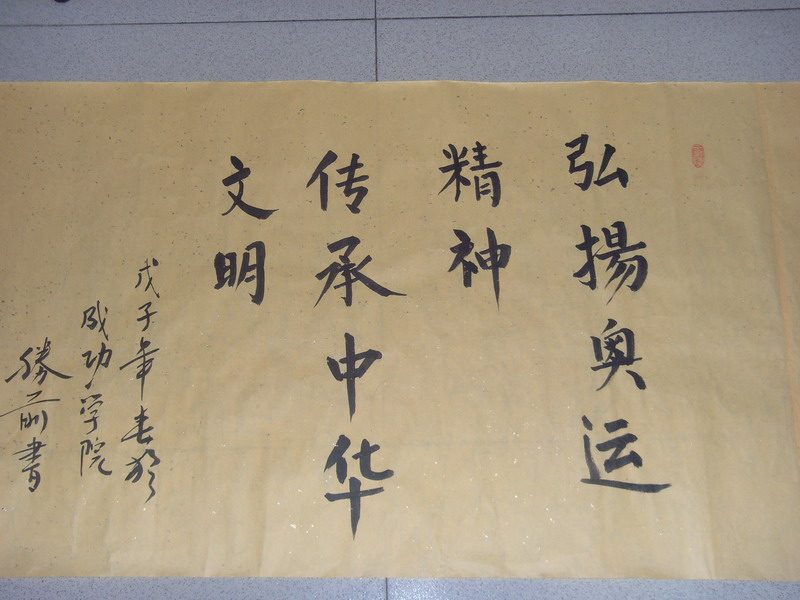 弘揚奥运
精神
传承中华
文明
戊子年春於
成功学院
勝前書